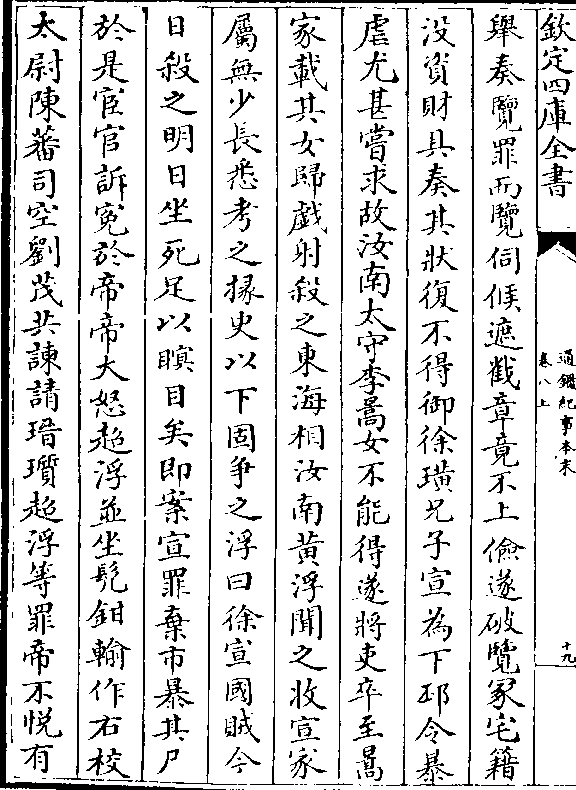 欽定四庫全書
通鑑紀事本末
卷八上
十九
舉奏覽罪而覽伺候遮截章竟不上儉遂破覽冢宅籍
没資財具奏其狀復不得御徐璜兄子宣為下邳令暴
虐尤甚嘗求故汝南太守李暠女不能得遂將吏卒至暠
家載其女歸戲射殺之東海相汝南黄浮聞之收宣家
屬無少長悉考之掾史以下固爭之浮曰徐宣國賊今
日殺之明日坐死足以瞑目矣即案宣罪棄市暴其尸
於是宦官訴寃於帝帝大怒超浮並坐髠鉗輸作右校
太尉陳蕃司空劉茂共諫請瑨瓆超浮等罪帝不悦有